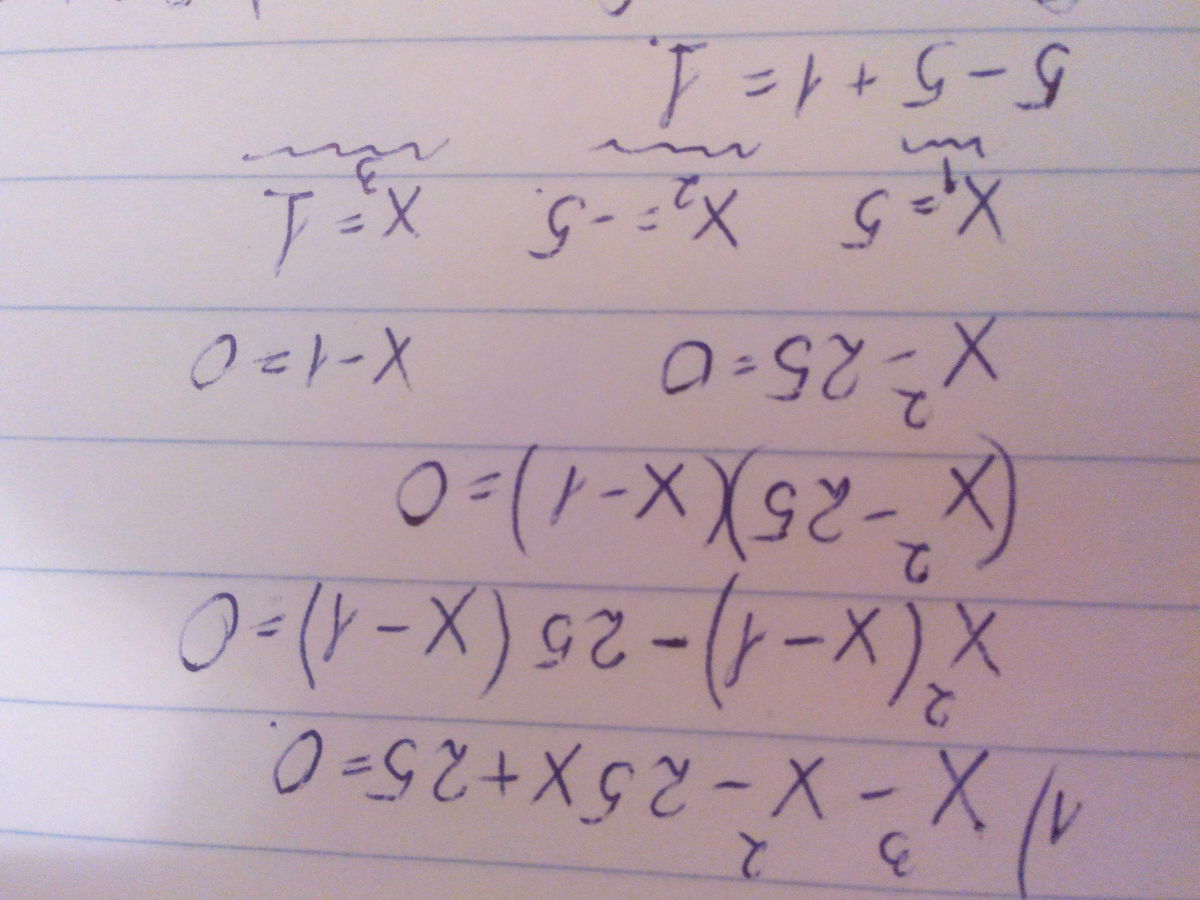 1) x³ - x² - 25x + 25 = 0.
x²(x - 1) - 25(x - 1) = 0
(x² - 25)(x - 1) = 0
x² - 25 = 0 x - 1 = 0
x₁ = 5 x₂ = -5. x₃ = 1
5 - 5 + 1 = 1.